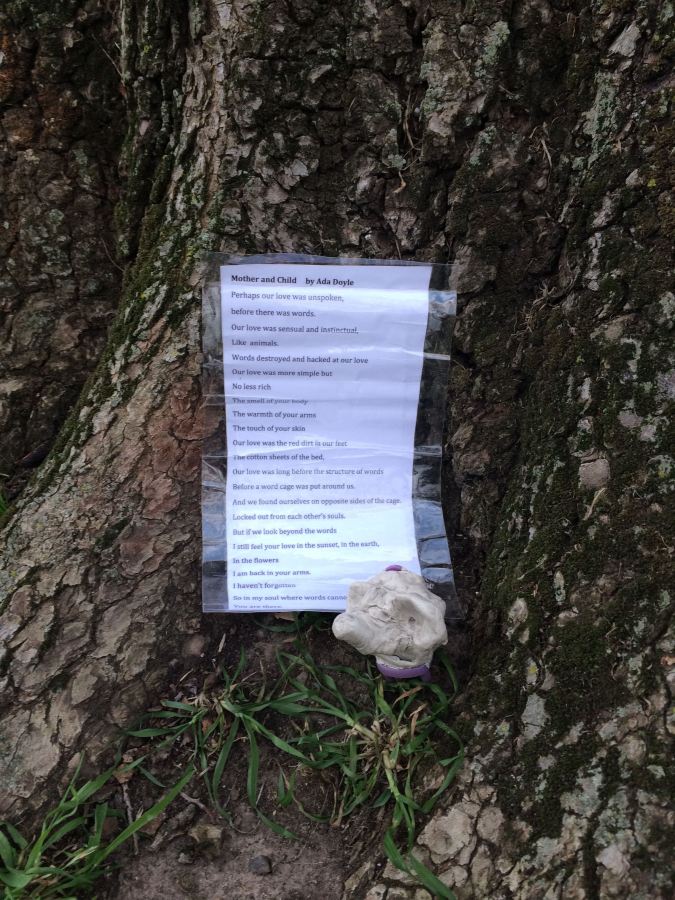 Mother and Child by Ada Doyle
Perhaps our love was unspoken,
before there was words.
Our love was sensual and instinctual,
Like animals.
Words destroyed and hacked at our love
Our love was more simple but
No less rich
The smell of your body
The warmth of your arms
The touch of your skin
Our love was the red dirt in our feet
The cotton sheets of the bed,
Our love was long before the structure of words
Before a word cage was put around us.
And we found ourselves on opposite sides of the cage.
Locked out from each other's souls.
But if we look beyond the words
I still feel your love in the sunset, in the earth,
In the flowers
I am back in your arms.
I haven't forgotten
So in my soul where words
You are there